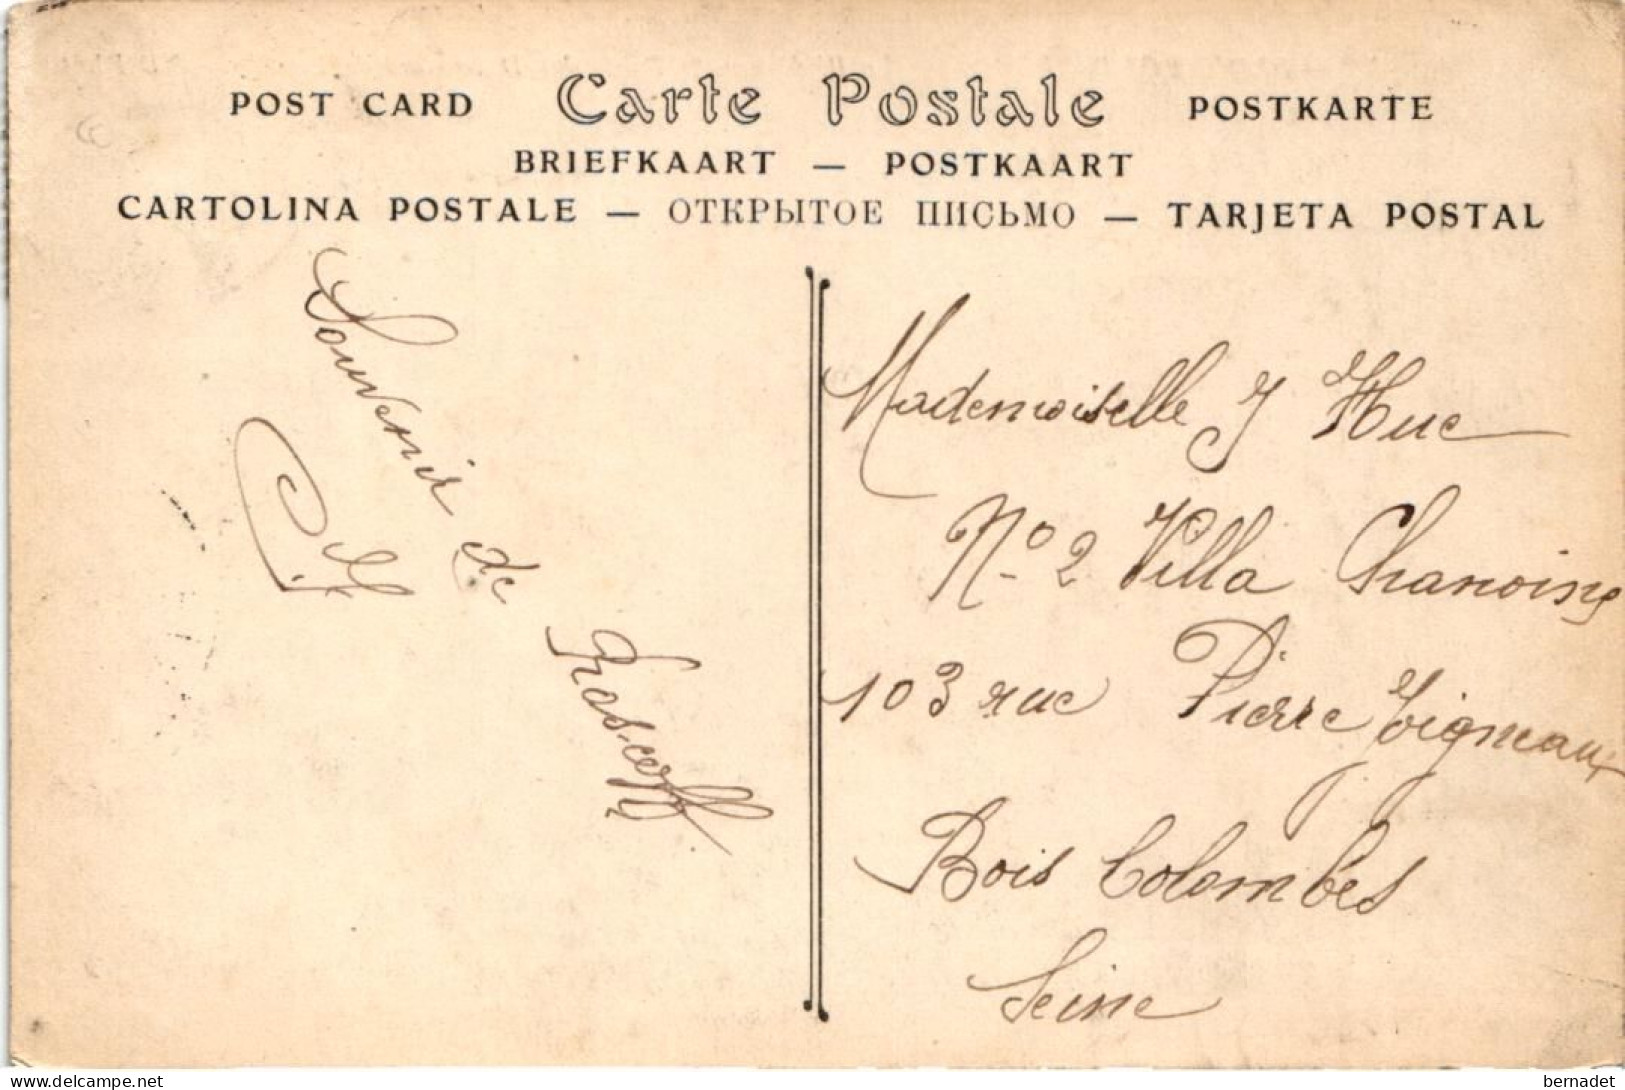 POST CARD Carte Postale POSTKARTE
BRIEFKAART — POSTKAART
CARTOLINA POSTALE — ОТКРЫТОЕ ПИСЬМО — TARJETA POSTAL
Souvenir de Roscoff
Mademoiselle J Huc
No 2 Villa
103 rue Pierre Joigneaux
Bois Colombes
Seine
bernadet